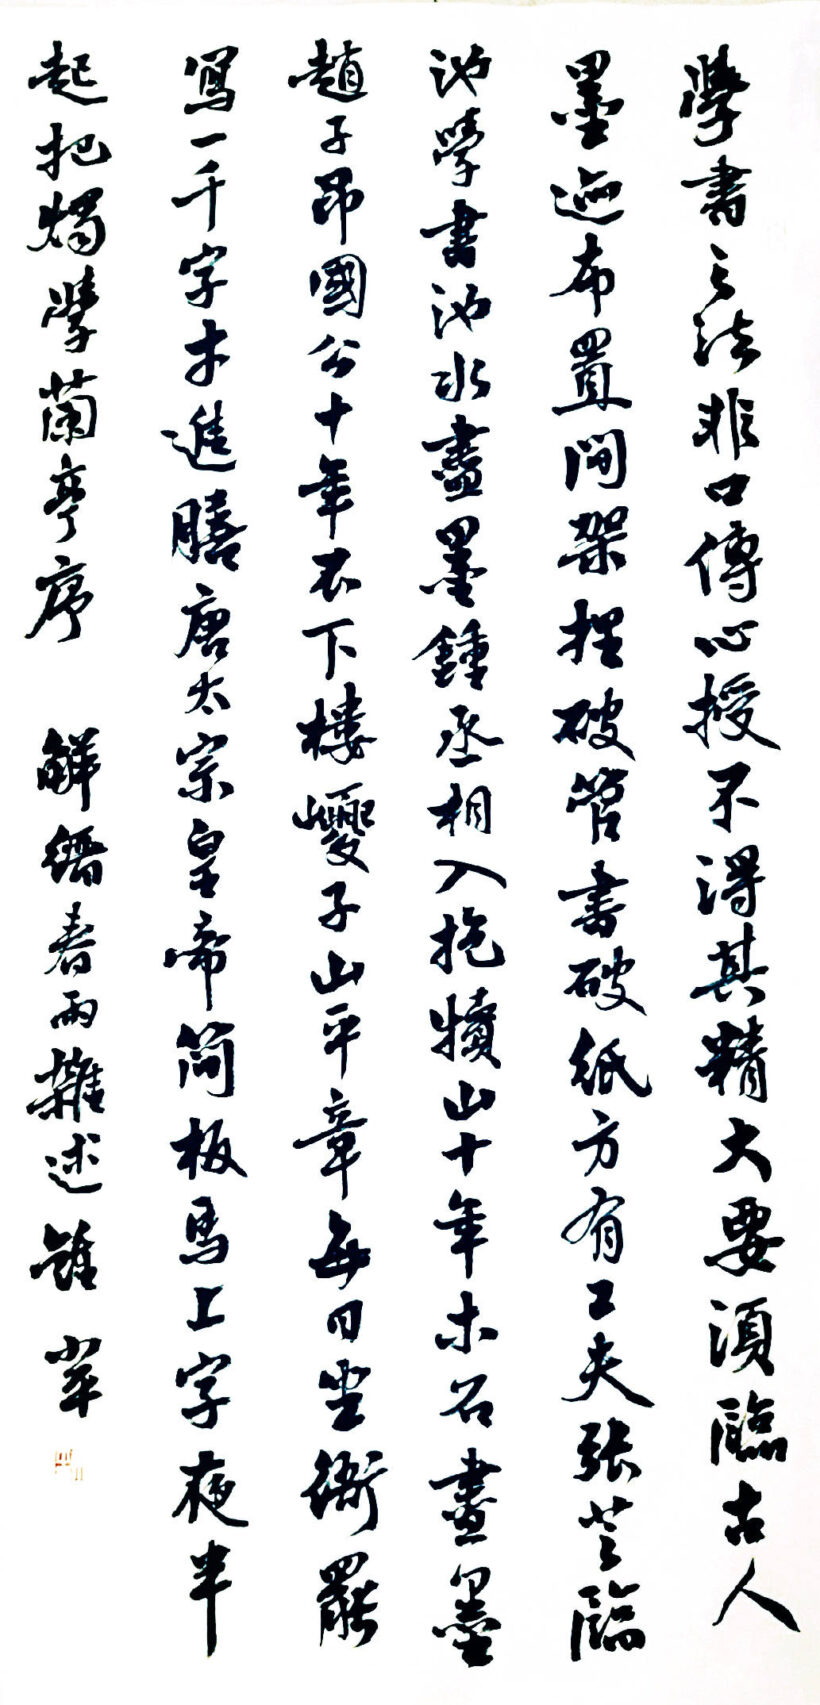 學書之法非口傳心授不得其精大要須臨古人
墨迹布置間架捏破管書破紙方有工夫張芝臨
池學書池水盡墨鍾丞相入抱犢山十年木石盡墨
趙子昂國公十年不下樓巙子山平章每日坐衙罷
寫一千字才進膳唐太宗皇帝简板馬上字夜半
起把燭學蘭亭序 解縉春雨雜述